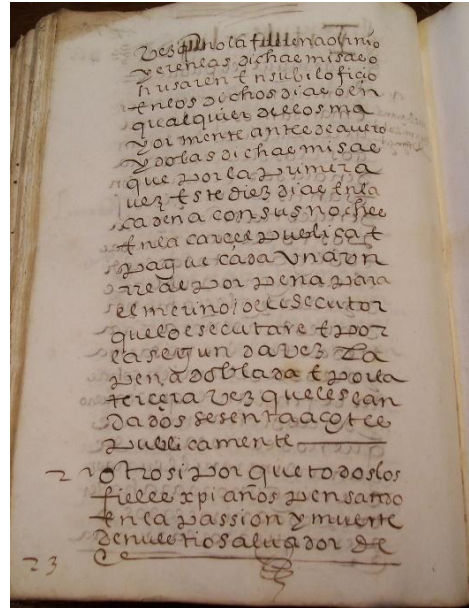 y eren las dichas misas o
n usaren en su bil oficio
en los dichos dias o en
qualquier dellos ma
yor mente antes de aver
ydo las dichas misas
que por la primera
vez este diez dias en la
cadena con sus noches
en la carcel publica e
pague cada uno un
rreal por pena para
el merino o el esecutor
que lo esecutare e por
la segunda vez la
pena doblada e por la
tercera vez que les sean
dados sesenta açotes
publicamente
otrosi por que todos los
fieles xpianos pensando
en la passion y muerte
de nuestro salvador de
23